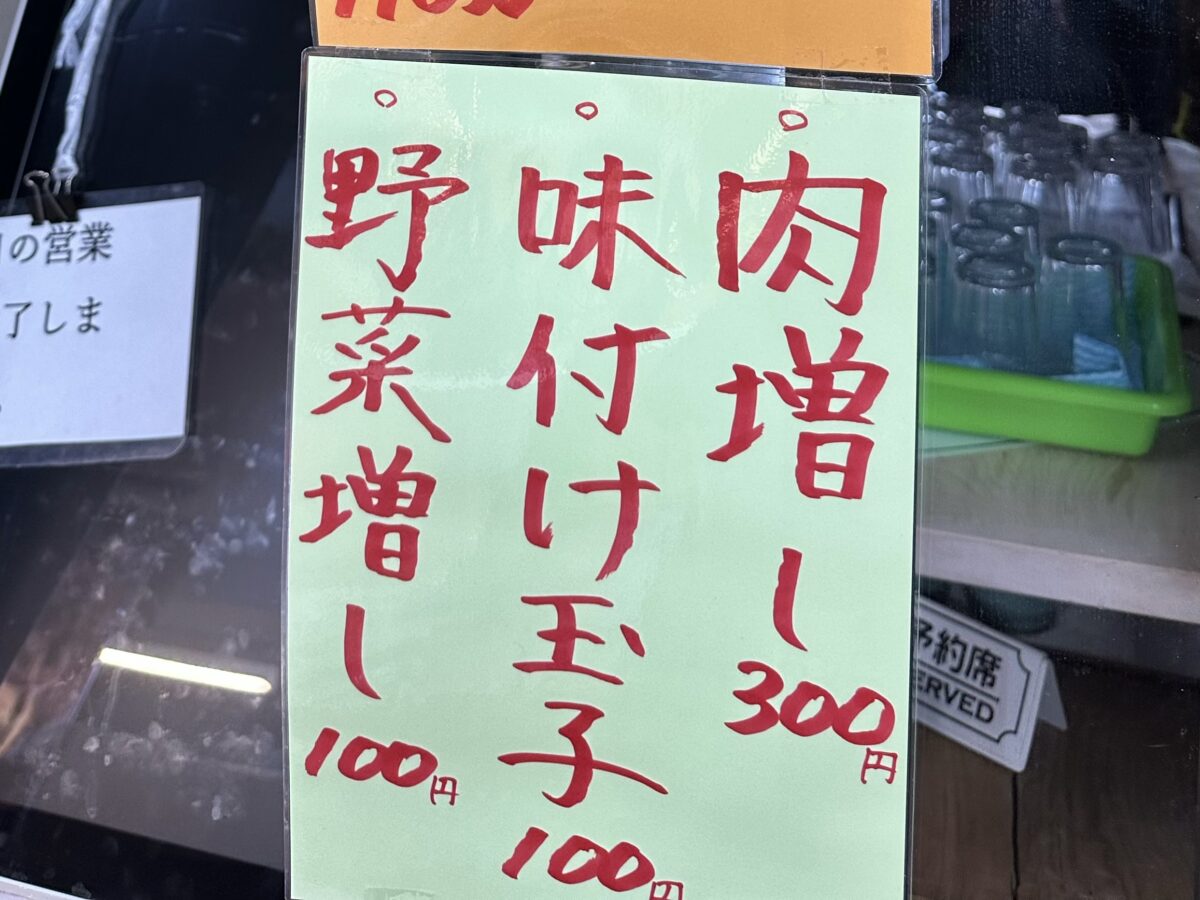 肉増し300円
味付け玉子100円
野菜増し100円
の営業
了しま
予約席
RESERVED